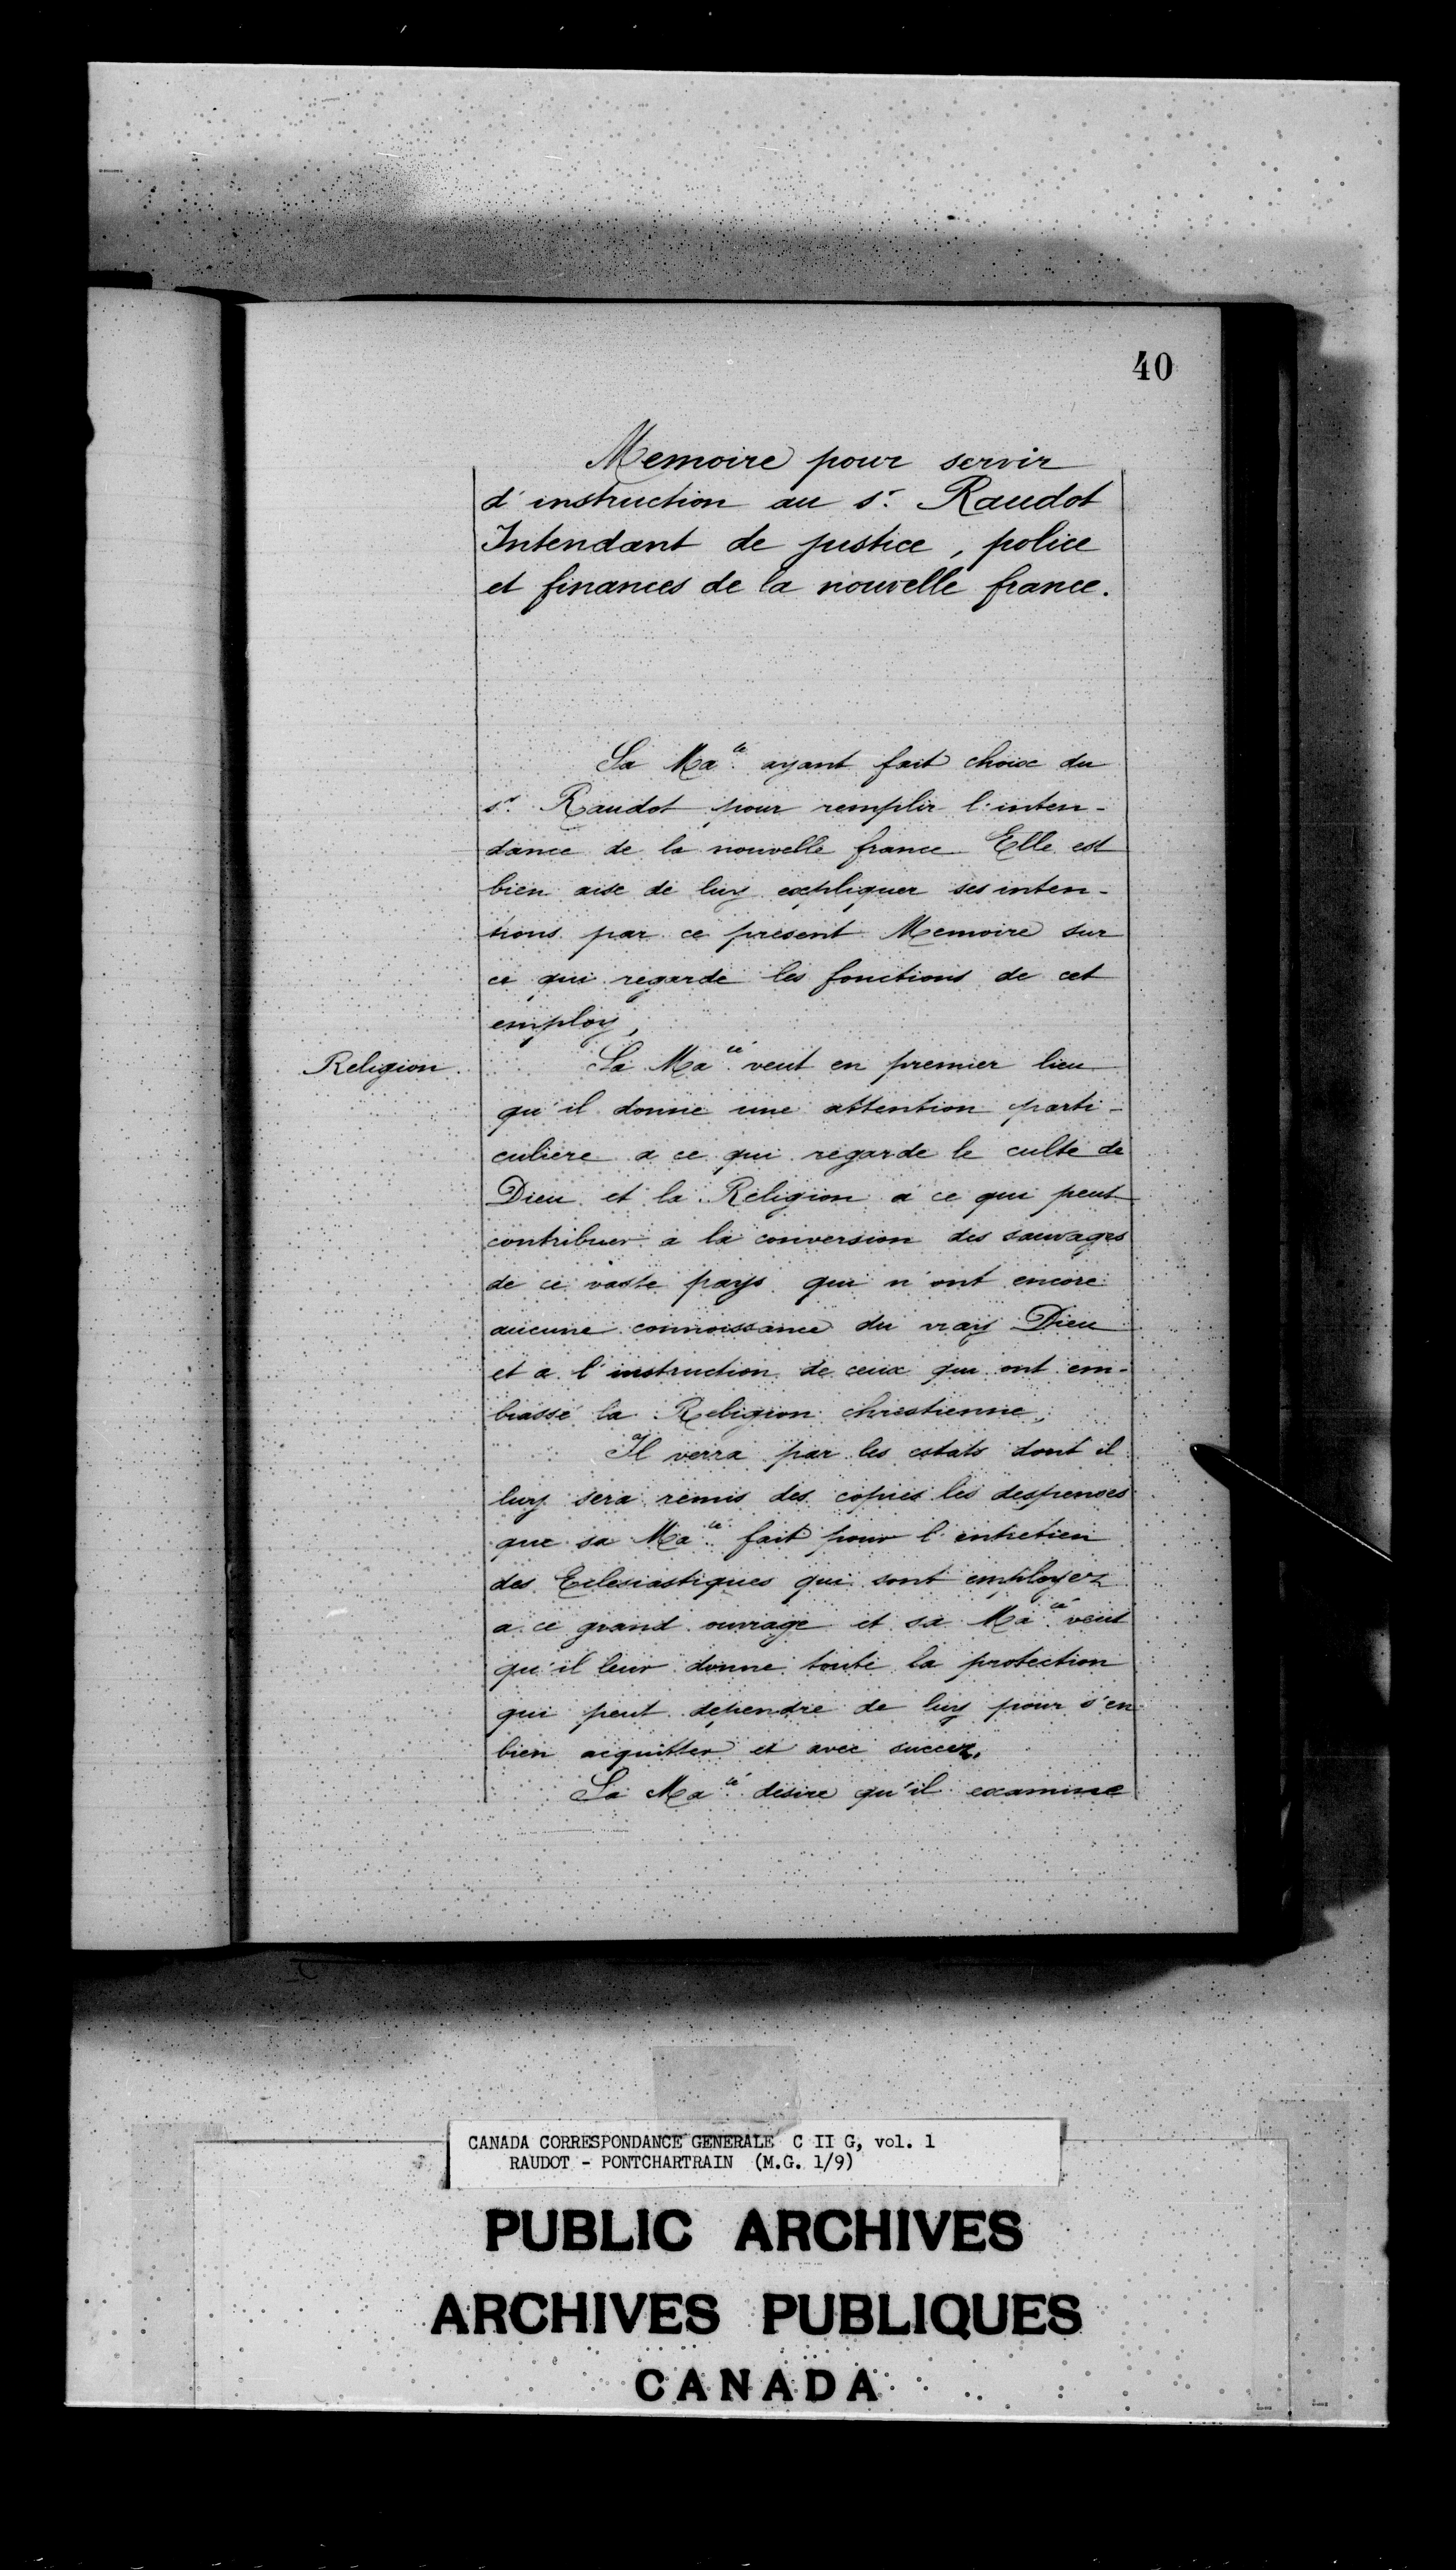 40
Memoire pour servir
d'instruction au sr. Raudot
Intendant de justice, police
et finances de la nouvelle france.
Sa Mate. ayant fait choix du
sr. Raudot pour remplir l'inten-
dance de la nouvelle france Elle est
bien aise de luy expliquer ses inten-
tions par ce present Memoire sur
ce qui regarde les fonctions de cet
employ,
Religion.
Sa Maté. veut en premier lieu
qu'il donne une attention parti-
culiere a ce qui regarde le culte de
Dieu et la Religion a ce qui peut
contribuer a la conversion des sauvages
de ce vaste pays qui n'ont encore
aucune connoissance du vray Dieu
et a l'instruction de ceux qui ont em-
brassé la Religion chrestienne,
Il verra par les estats dont il
luy sera remis des copies les despenses
que sa Maté. fait pour l'entretien
des Eclesiastiques qui sont employez
a ce grand ouvrage et sa Maté. veut
qu'il leur donne toute la protection
qui peut dependre de luy pour s'en
bien acquitter et avec succez.
Sa Maté. desire qu'il examine
CANADA CORRESPONDANCE GENERALE C II G, vol. 1
RAUDOT - PONTCHARTRAIN (M.G. 1/9)
PUBLIC ARCHIVES
ARCHIVES PUBLIQUES
CANADA